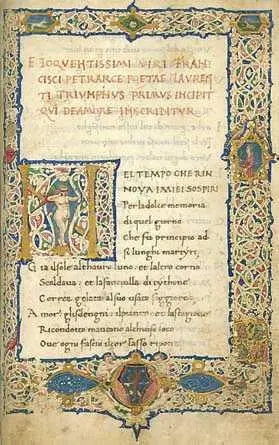 ELOQVENTISSIMI VIRI FRAN
CISCI PETRARCE POETAE LAVREN
TI TRIVMPHVS PRIMVS INCIPIT
QVI DE AMORE INSCRIBITVR
EL TEMPO CHE RIN
NOVA IMIEI SOSPIRI
Per la dolce memoria
di quel giorno
Che fu principio ad
si lunghi martyri,
Gia il sole al thauro luno et laltro corno
Scaldaua: et la fanciulla di tythone
Correa gelata al suo usato soggiorno
Amor, gli sdegni, il pianto, et la stagione
Ricondotto maueano al chiuso loco
Oue ogni fascio il cor lasso ripone